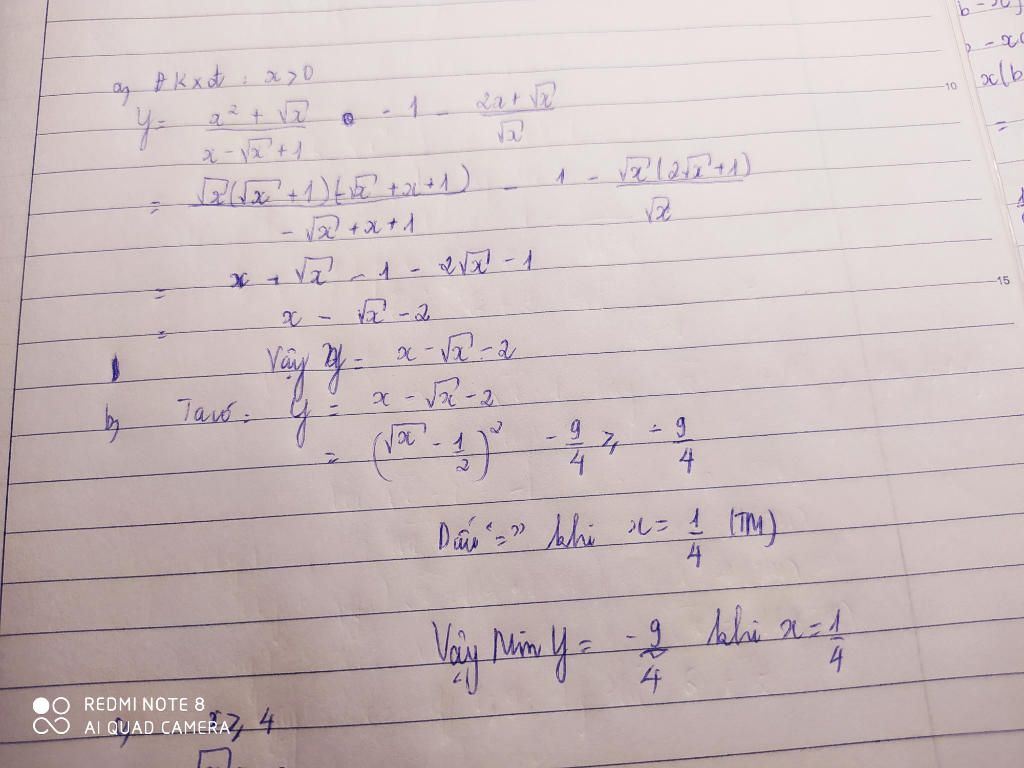 a, ĐKxđ: x>0
Y= \frac{x² + √x}{x-√x+1} - 1 - \frac{2x+√x}{√x}
= \frac{√x(√x+1)(-√x+x+1)}{-√x+x+1} - 1 - \frac{√x(2√x+1)}{√x}
= x + √x - 1 - 2√x - 1
= x - √x - 2
Vậy Y= x-√x-2
b, Ta có: Y = x-√x-2
= (√x - \frac{1}{2})² - \frac{9}{4} ≥ -\frac{9}{4}
Dấu "=" khi x= \frac{1}{4} (TM)
Vậy Min Y = -\frac{9}{4} khi x= \frac{1}{4}
≥ 4
10
15
b-x
-x
x(b
=
REDMI NOTE 8
AI QUAD CAMERA